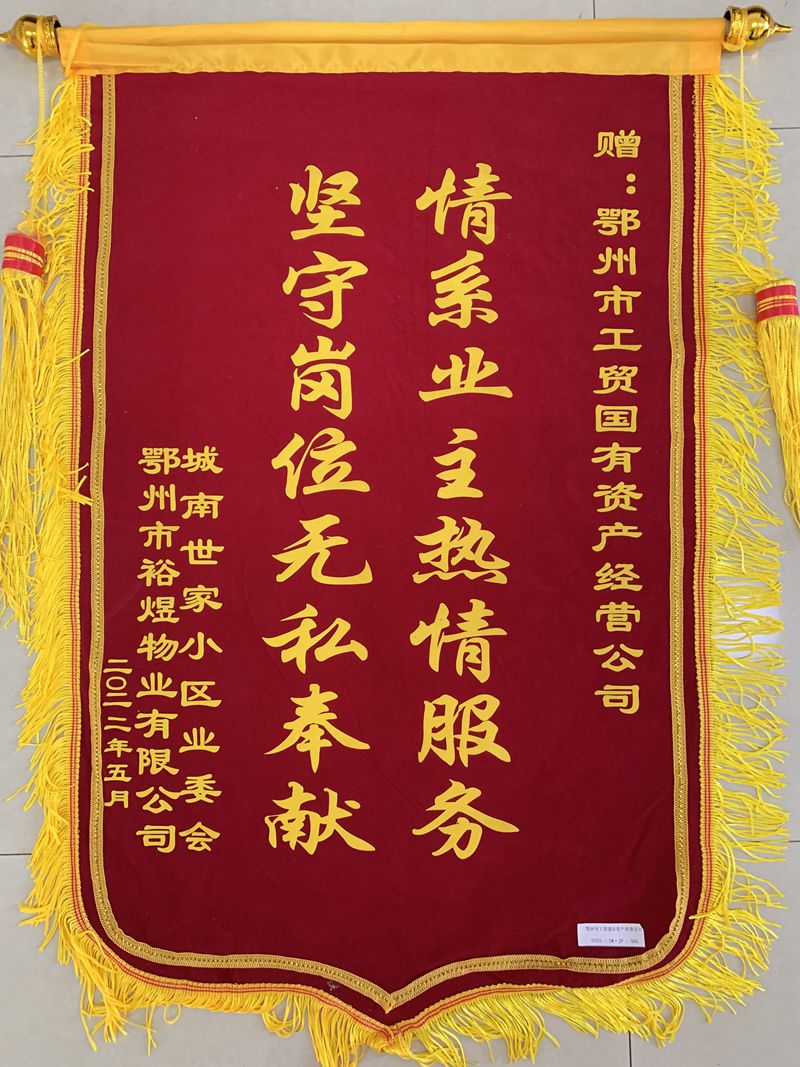 赠：鄂州市工贸国有资产经营公司
情系业主热情服务
坚守岗位无私奉献
城南世家小区业委会
鄂州市裕煜物业有限公司
二〇二二年五月